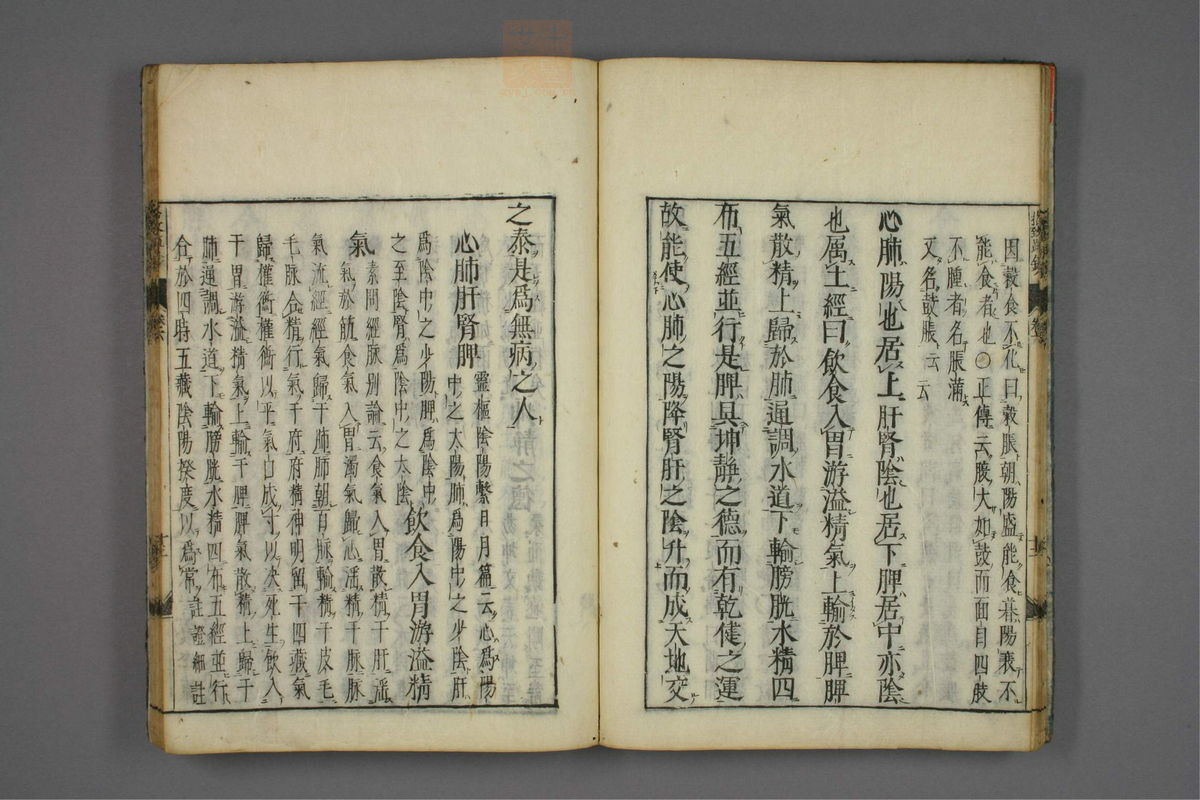 因穀食不化曰穀脹朝陽盛能食暮陽衰不
能食者也○正傳云腹大如鼓而面目四肢
不腫者名脹滿
又名鼓脹云云
心肺陽也居上肝腎陰也居下脾居中亦陰
也属土經曰飲食入胃游溢精氣上輸於脾脾
氣散精上歸於肺通調水道下輸膀胱水精四
布五經並行是脾具坤靜之德而有乾健之運
故能使心肺之陽降腎肝之陰升而成天地交
之泰是爲無病之人
心肺肝腎脾
靈樞陰陽繫日月篇云心爲陽
中之太陽肺爲陽中之少陰肝
爲陰中之少陽脾爲陰中
之至陰腎爲陰中之太陰
飲食入胃游溢精
氣
素問經脉别論云食氣入胃散精于肝滛
氣於筋食氣入胃濁氣歸心滛精于脉脉
氣流經經氣歸于肺肺朝百脉輸精于皮毛
毛脉合精行氣于府府精神明留于四藏氣
歸權衡權衡以平氣口成寸以决死生飲入
于胃游溢精氣上輸于脾脾氣散精上歸于
肺通調水道下輸膀胱水精四布五經並行
合於四時五藏陰陽揆度以爲常註證細註